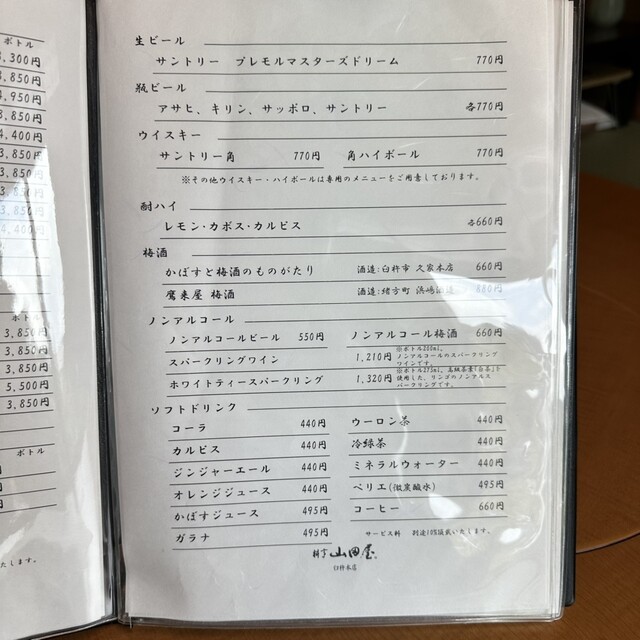 ボトル
,300円
,850円
,950円
,850円
,400円
,850円
3,850円
3,850円
ボトル
3,850円
3,850円
3,850円
5,500円
3,850円
ボトル
円
円
円
たします。
生ビール
サントリー プレモルマスターズドリーム 770円
瓶ビール
アサヒ、キリン、サッポロ、サントリー 各770円
ウイスキー
サントリー角 770円 角ハイボール 770円
※その他ウイスキー・ハイボールは専用のメニューをご用意しております。
酎ハイ
レモン・カボス・カルピス 各660円
梅酒
かぼすと梅酒のものがたり 酒造:臼杵市 久家本店 660円
鷹来屋 梅酒 酒造:緒方町 浜嶋酒造 880円
ノンアルコール
ノンアルコールビール 550円 ノンアルコール梅酒 660円
スパークリングワイン 1,210円 ※ボトル200ml。
ノンアルコールのスパークリング
ワインです。
ホワイトティースパークリング 1,320円 ※ボトル275ml。高級茶葉「白茶」を
使用した、リンゴのノンアルス
パークリングです。
ソフトドリンク
コーラ 440円 ウーロン茶 440円
カルピス 440円 冷緑茶 440円
ジンジャーエール 440円 ミネラルウォーター 440円
オレンジジュース 440円 ペリエ(微炭酸水) 495円
かぼすジュース 495円 コーヒー 660円
ガラナ 495円
サービス料 別途10%頂戴いたします。
山田屋
臼杵本店